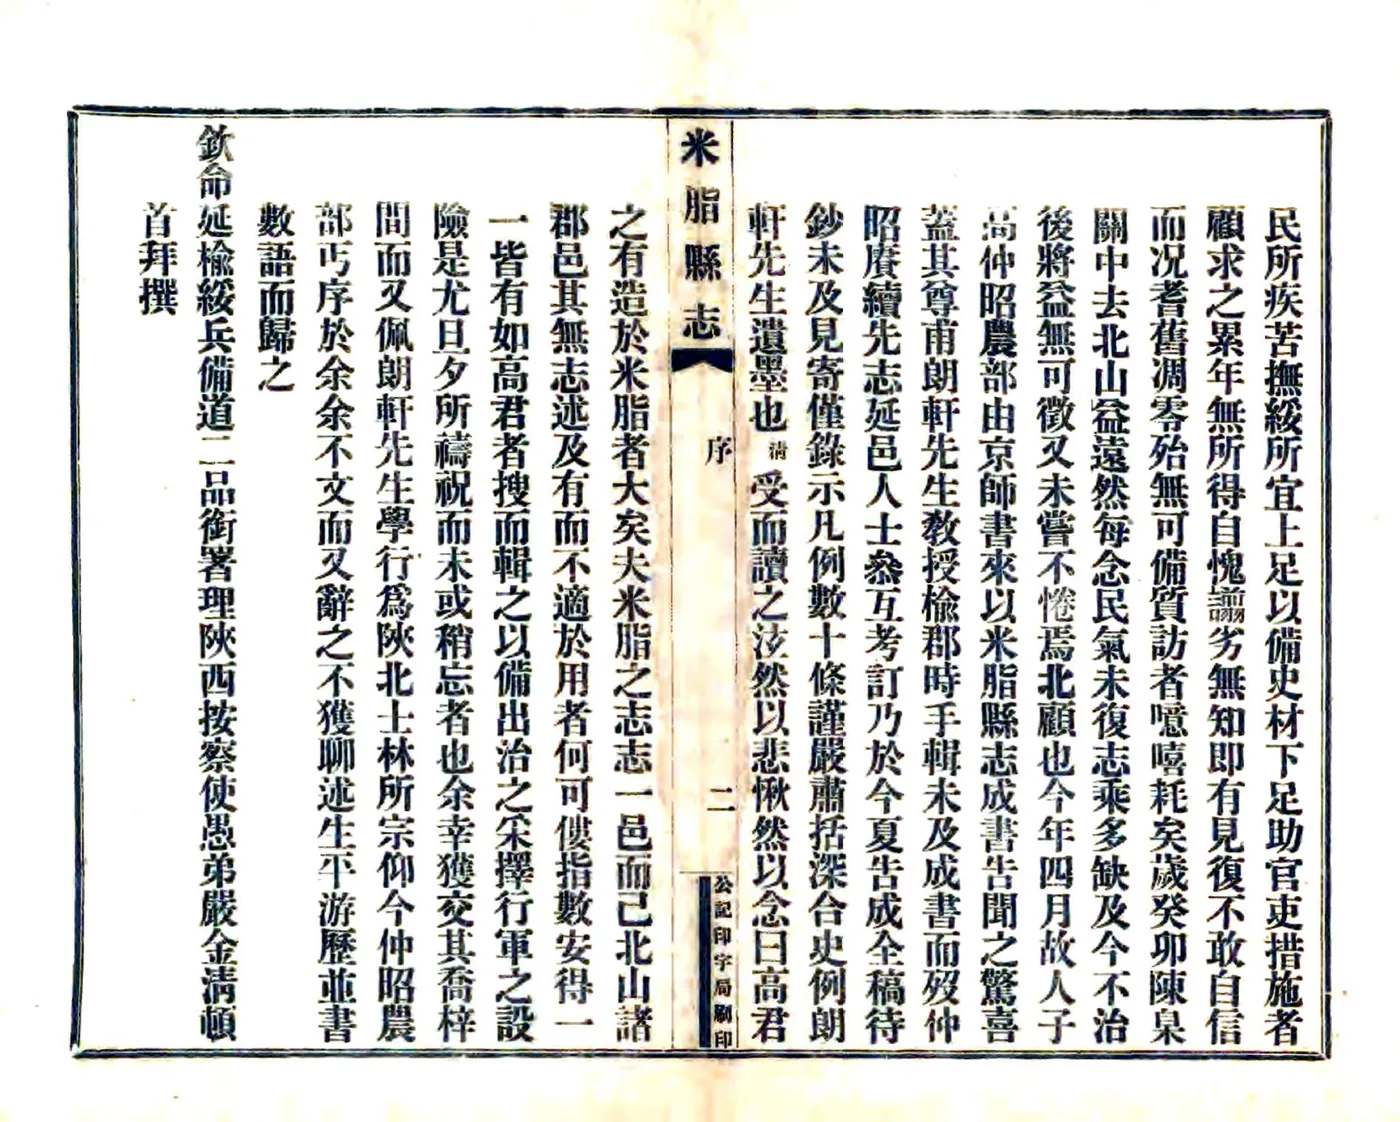 民所疾苦撫綏所宜上足以備史材下足助官吏措施者
顧求之累年無所得自愧譾劣無知即有見復不敢自信
而况耆舊凋零殆無可備質訪者噫嘻耗矣歲癸卯陳臬
關中去北山益遠然每念民氣未復志乘多缺及今不治
後將益無可徵又未嘗不惓焉北顧也今年四月故人子
高仲昭農部由京師書來以米脂縣志成書告聞之驚喜
蓋其尊甫朗軒先生教授榆郡時手輯未及成書而歿仲
昭賡續先志延邑人士叅互考訂乃於今夏告成全稿待
鈔未及見寄僅錄示凡例數十條謹嚴肅括深合史例朗
軒先生遺墨也清受而讀之泫然以悲愀然以念曰高君
米脂縣志
序
二
公記印字局刷印
之有造於米脂者大矣夫米脂之志志一邑而已北山諸
郡邑其無志述及有而不適於用者何可僂指數安得一
一皆有如高君者搜而輯之以備出治之采擇行軍之設
險是尤旦夕所禱祝而未或稍忘者也余幸獲交其喬梓
間而又佩朗軒先生學行為陝北士林所宗仰今仲昭農
部丐序於余余不文而又辭之不獲聊述生平游歷並書
數語而歸之
欽命延榆綏兵備道二品銜署理陝西按察使愚弟嚴金清頓
首拜撰